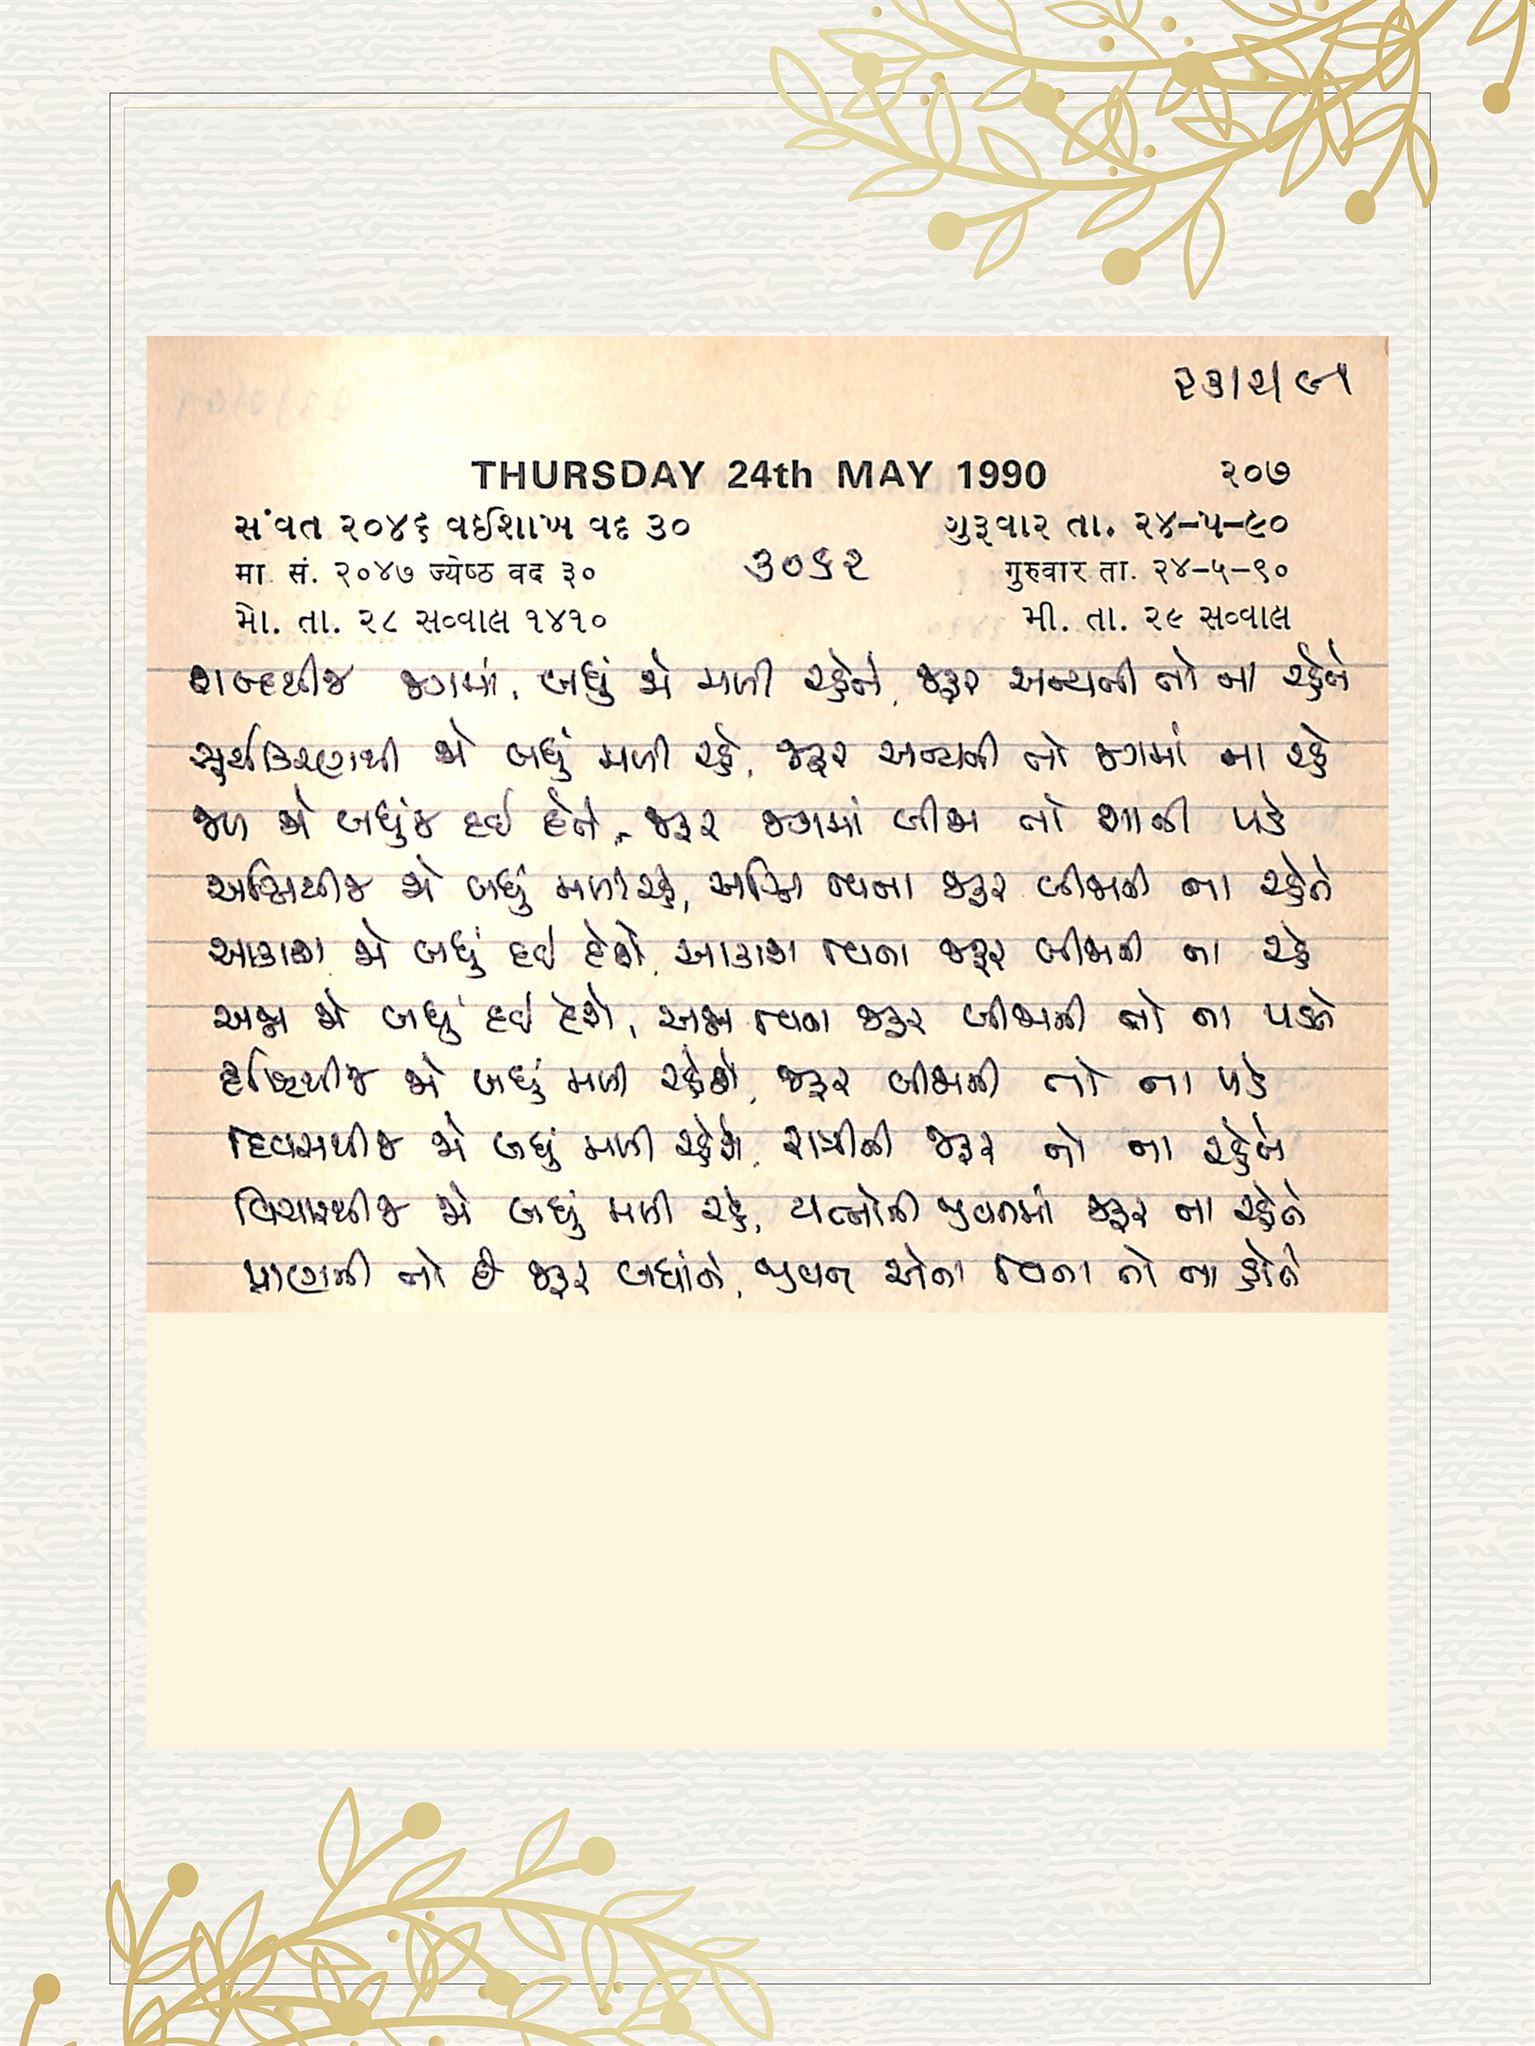 ૨૩/૨/૯૧
THURSDAY 24th MAY 1990 ૨૦૭
સંવત ૨૦૪૬ વઈશાખ વદ ૩૦ ગુરૂવાર તા. ૨૪-૫-૯૦
मा. सं. २०४७ ज्येष्ठ वद ३० ૩૦૬૨ गुरुवार ता. २४-५-९०
મો. તા. ૨૮ સવ્વાલ ૧૪૧૦ મી. તા. ૨૯ સવ્વાલ
શબ્દથીજ જગમાં, બધું જો મળી રહેને, જરૂર અન્યની તો ના રહેને
સૂર્યકિરણથી જો બધું મળી રહે, જરૂર અન્યની તો જગમાં ના રહે
જળ જો બધુંજ દઈ દેને, જરૂર જગમાં બીજા તો શાની પડે
અગ્નિથીજ જો બધું મળી રહે, અગ્નિ વિના જરૂર બીજાની ના રહેને
આકાશ જો બધું દઈ દેશે, આકાશ વિના જરૂર બીજાની ના રહે
અન્ન જો બધું દઈ દેશે, અન્ન વિના જરૂર બીજાની તો ના પડને
દ્રષ્ટિથીજ જો બધું મળી રહેશે, જરૂર બીજાની તો ના પડે
દિવસથીજ જો બધું મળી રહેશે, રાત્રીની જરૂર તો ના રહેને
વિચારથીજ જો બધું મળી રહે, યત્નોની જીવનમાં જરૂર ના રહેને
પ્રાણની તો છે જરૂર બધાંને, જીવન એના વિના તો ના હોને